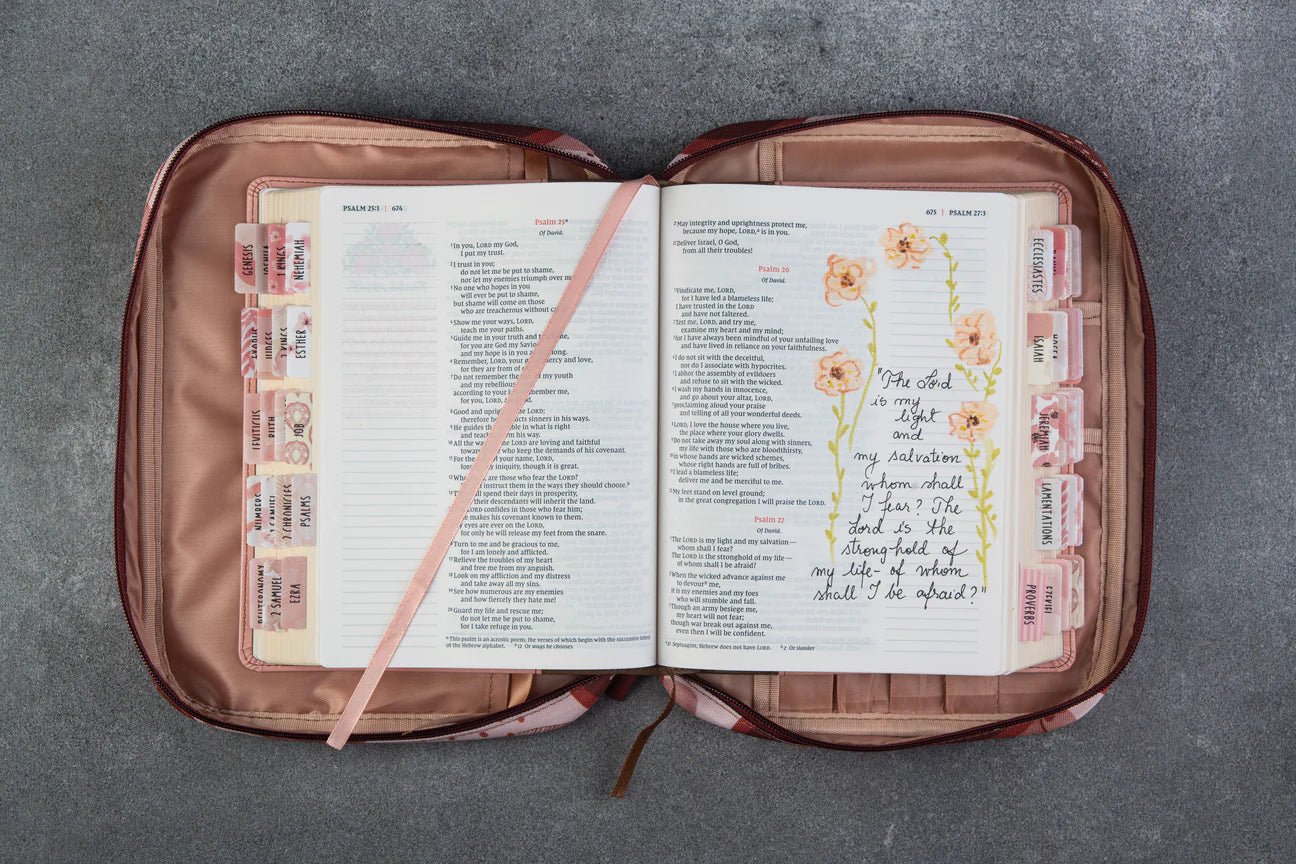 GENESIS
1 KINGS
NEHEMIAH
ESTHER
LEVITICUS
RUTH
JOB
NUMBERS
2 CHRONICLES
PSALMS
DEUTERONOMY
2 SAMUEL
EZRA
PSALM 25:1 | 674
Psalm 25ᵃ
Of David.
1 In you, LORD my God,
I put my trust.
2 I trust in you;
do not let me be put to shame,
nor let my enemies triumph over me
3 No one who hopes in you
will ever be put to shame,
but shame will come on those
who are treacherous without
4 Show me your ways, LORD,
teach me your paths.
5 Guide me in your truth and
for you are God my Savior
and my hope is in you long.
6 Remember, LORD, your mercy and love,
for they are from of
7 Do not remember the of my youth
and my rebellious
according to your remember me,
for you, LORD,
8 Good and upright LORD;
therefore he sinners in his ways.
9 He guides the in what is right
and teaches them his way.
10 All the ways of the LORD are loving and faithful
toward who keep the demands of his covenant.
11 For the your name, LORD,
iniquity, though it is great.
12 Who, are those who fear the LORD?
instruct them in the ways they should choose.ᵇ
13 spend their days in prosperity,
their descendants will inherit the land.
14 LORD confides in those who fear him;
he makes his covenant known to them.
15 My eyes are ever on the LORD,
for only he will release my feet from the snare.
16 Turn to me and be gracious to me,
for I am lonely and afflicted.
17 Relieve the troubles of my heart
and free me from my anguish.
18 Look on my affliction and my distress
and take away all my sins.
19 See how numerous are my enemies
and how fiercely they hate me!
20 Guard my life and rescue me;
do not let me be put to shame,
for I take refuge in you.
ᵃ This psalm is an acrostic poem, the verses of which begin with the successive letters
of the Hebrew alphabet. ᵇ 12 Or ways he chooses
675 | PSALM 27:3
21 May integrity and uprightness protect me,
because my hope, LORD,ᵃ is in you.
22 Deliver Israel, O God,
from all their troubles!
Psalm 26
Of David.
1 Vindicate me, LORD,
for I have led a blameless life;
I have trusted in the LORD
and have not faltered.
2 Test me, LORD, and try me,
examine my heart and my mind;
3 for I have always been mindful of your unfailing love
and have lived in reliance on your faithfulness.
4 I do not sit with the deceitful,
nor do I associate with hypocrites.
5 I abhor the assembly of evildoers
and refuse to sit with the wicked.
6 I wash my hands in innocence,
and go about your altar, LORD,
7 proclaiming aloud your praise
and telling of all your wonderful deeds.
8 LORD, I love the house where you live,
the place where your glory dwells.
9 Do not take away my soul along with sinners,
my life with those who are bloodthirsty,
10 in whose hands are wicked schemes,
whose right hands are full of bribes.
11 I lead a blameless life;
deliver me and be merciful to me.
12 My feet stand on level ground;
in the great congregation I will praise the LORD.
Psalm 27
Of David.
1 The LORD is my light and my salvation—
whom shall I fear?
The LORD is the stronghold of my life—
of whom shall I be afraid?
2 When the wicked advance against me
to devourᵇ me,
it is my enemies and my foes
who will stumble and fall.
3 Though an army besiege me,
my heart will not fear;
though war break out against me,
even then I will be confident.
ᵃ 21 Septuagint; Hebrew does not have LORD. ᵇ 2 Or slander
"The Lord
is my
light
and
my salvation
whom shall
I fear? The
Lord is the
stronghold of
my life- of whom
shall I be afraid?"
ECCLESIASTES
ISAIAH
JEREMIAH
LAMENTATIONS
PROVERBS